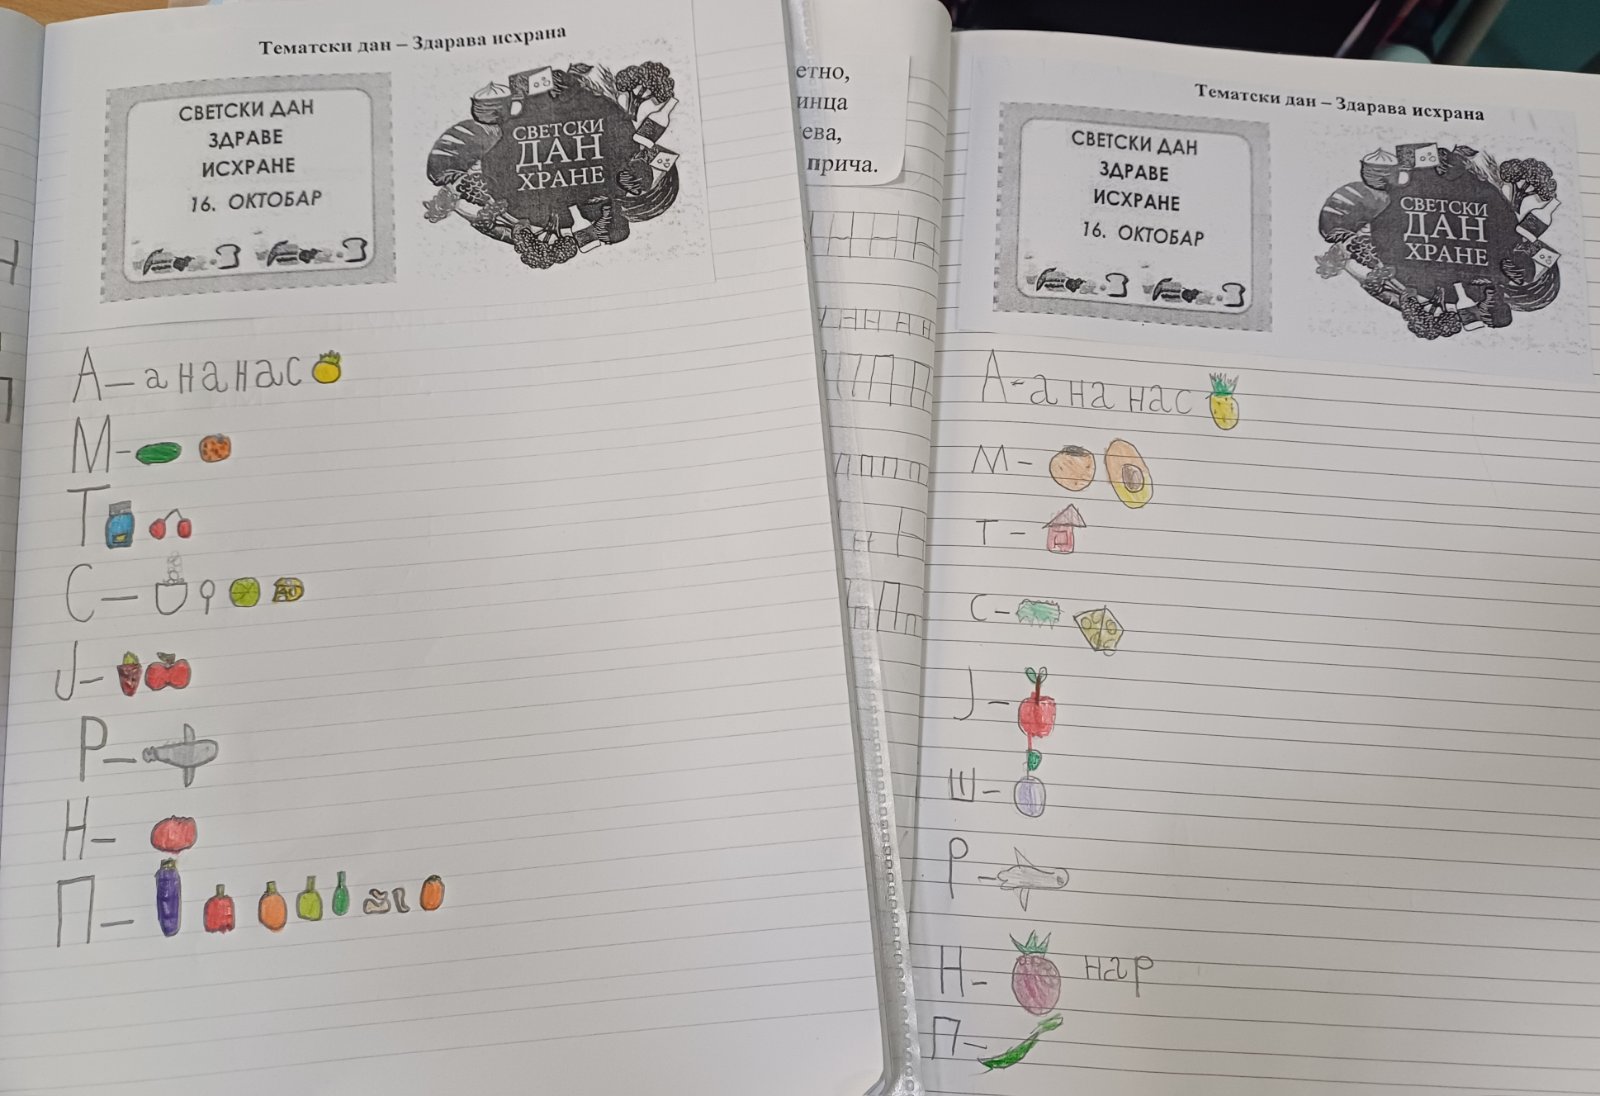 Тематски дан – Здарава исхрана
СВЕТСКИ ДАН
ЗДРАВЕ
ИСХРАНЕ
16. ОКТОБАР
СВЕТСКИ
ДАН
ХРАНЕ
А – ананас
М –
Т
С –
Ј –
Р –
Н –
П –
етно,
инца
ева,
прича.
Тематски дан – Здарава исхрана
СВЕТСКИ ДАН
ЗДРАВЕ
ИСХРАНЕ
16. ОКТОБАР
СВЕТСКИ
ДАН
ХРАНЕ
А - ананас
М –
Т –
С –
Ј –
Ш –
Р –
Н – нар
П –